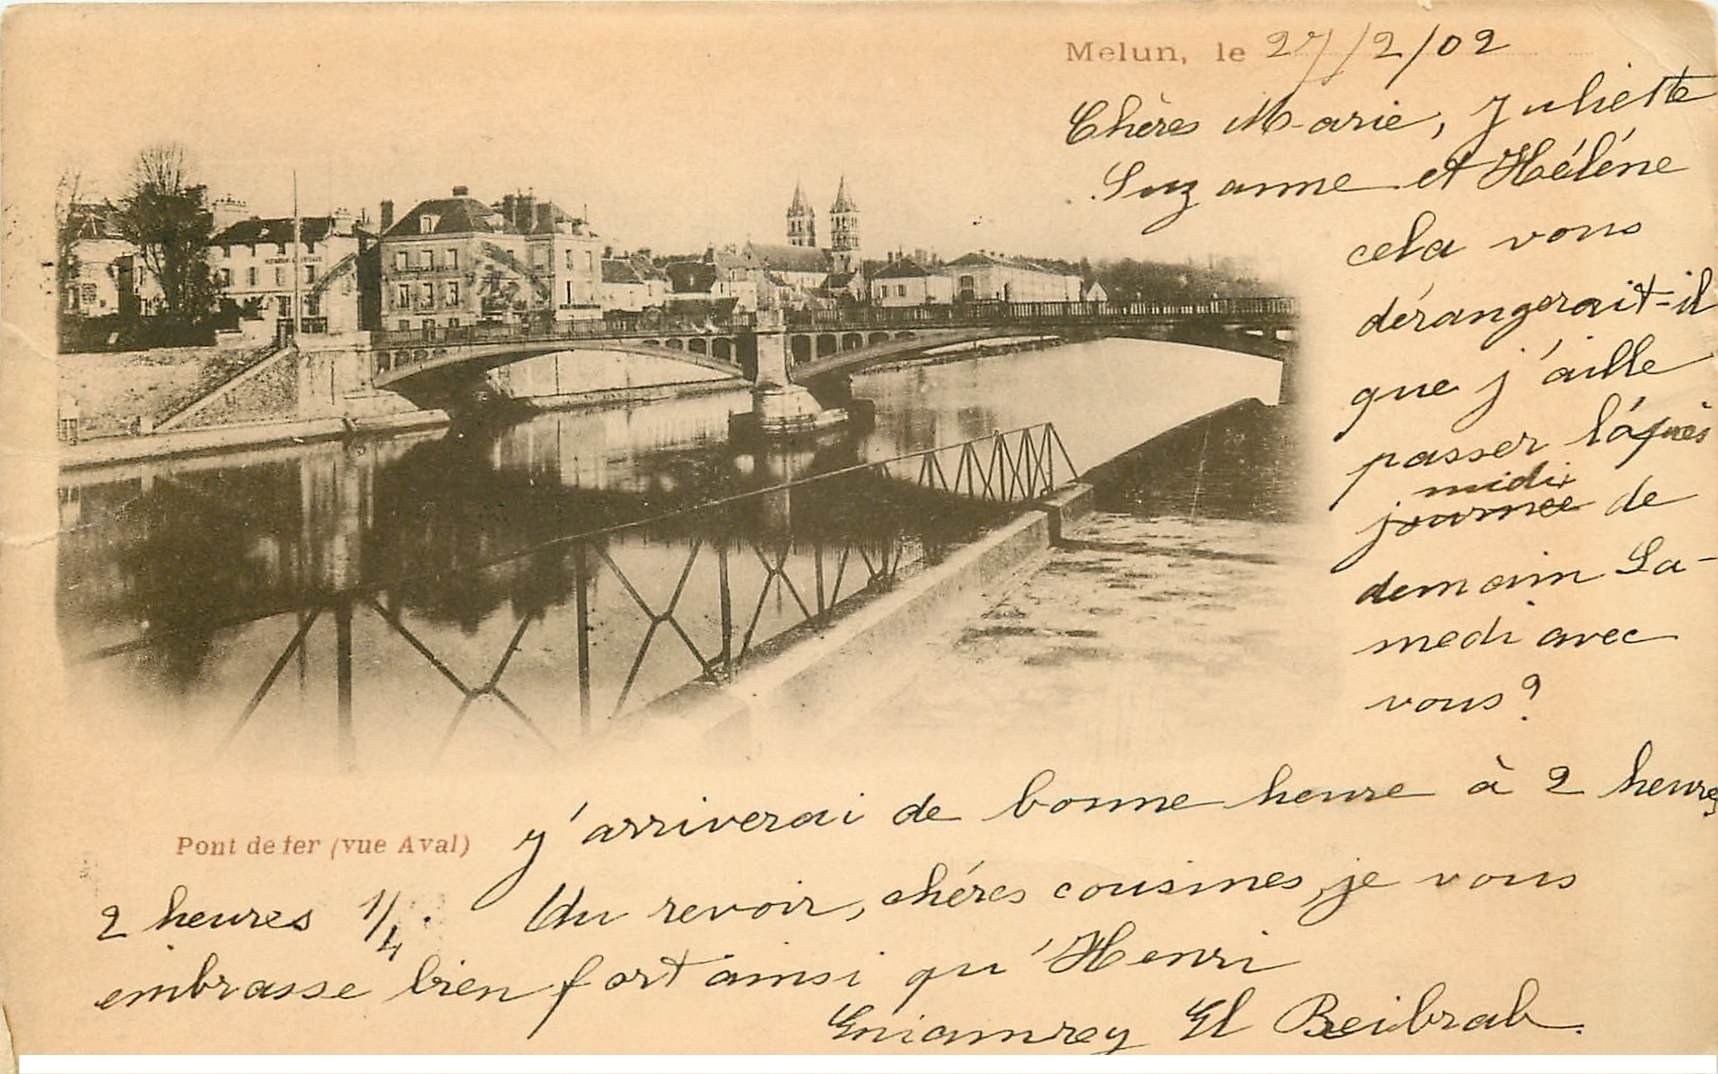 Melun, le 27/2/02
Chères Marie, Juliette
Suzanne et Hélène
cela vous
dérangerait-il
que j'aille
passer l'après
midi
journée de
demain Sa-
medi avec
vous?
j'arriverai de bonne heure à 2 heures
Pont de fer (vue Aval)
2 heures 1/4. Au revoir, chéres cousines, je vous
embrasse bien fort ainsi qu'Henri
El Beibrab.